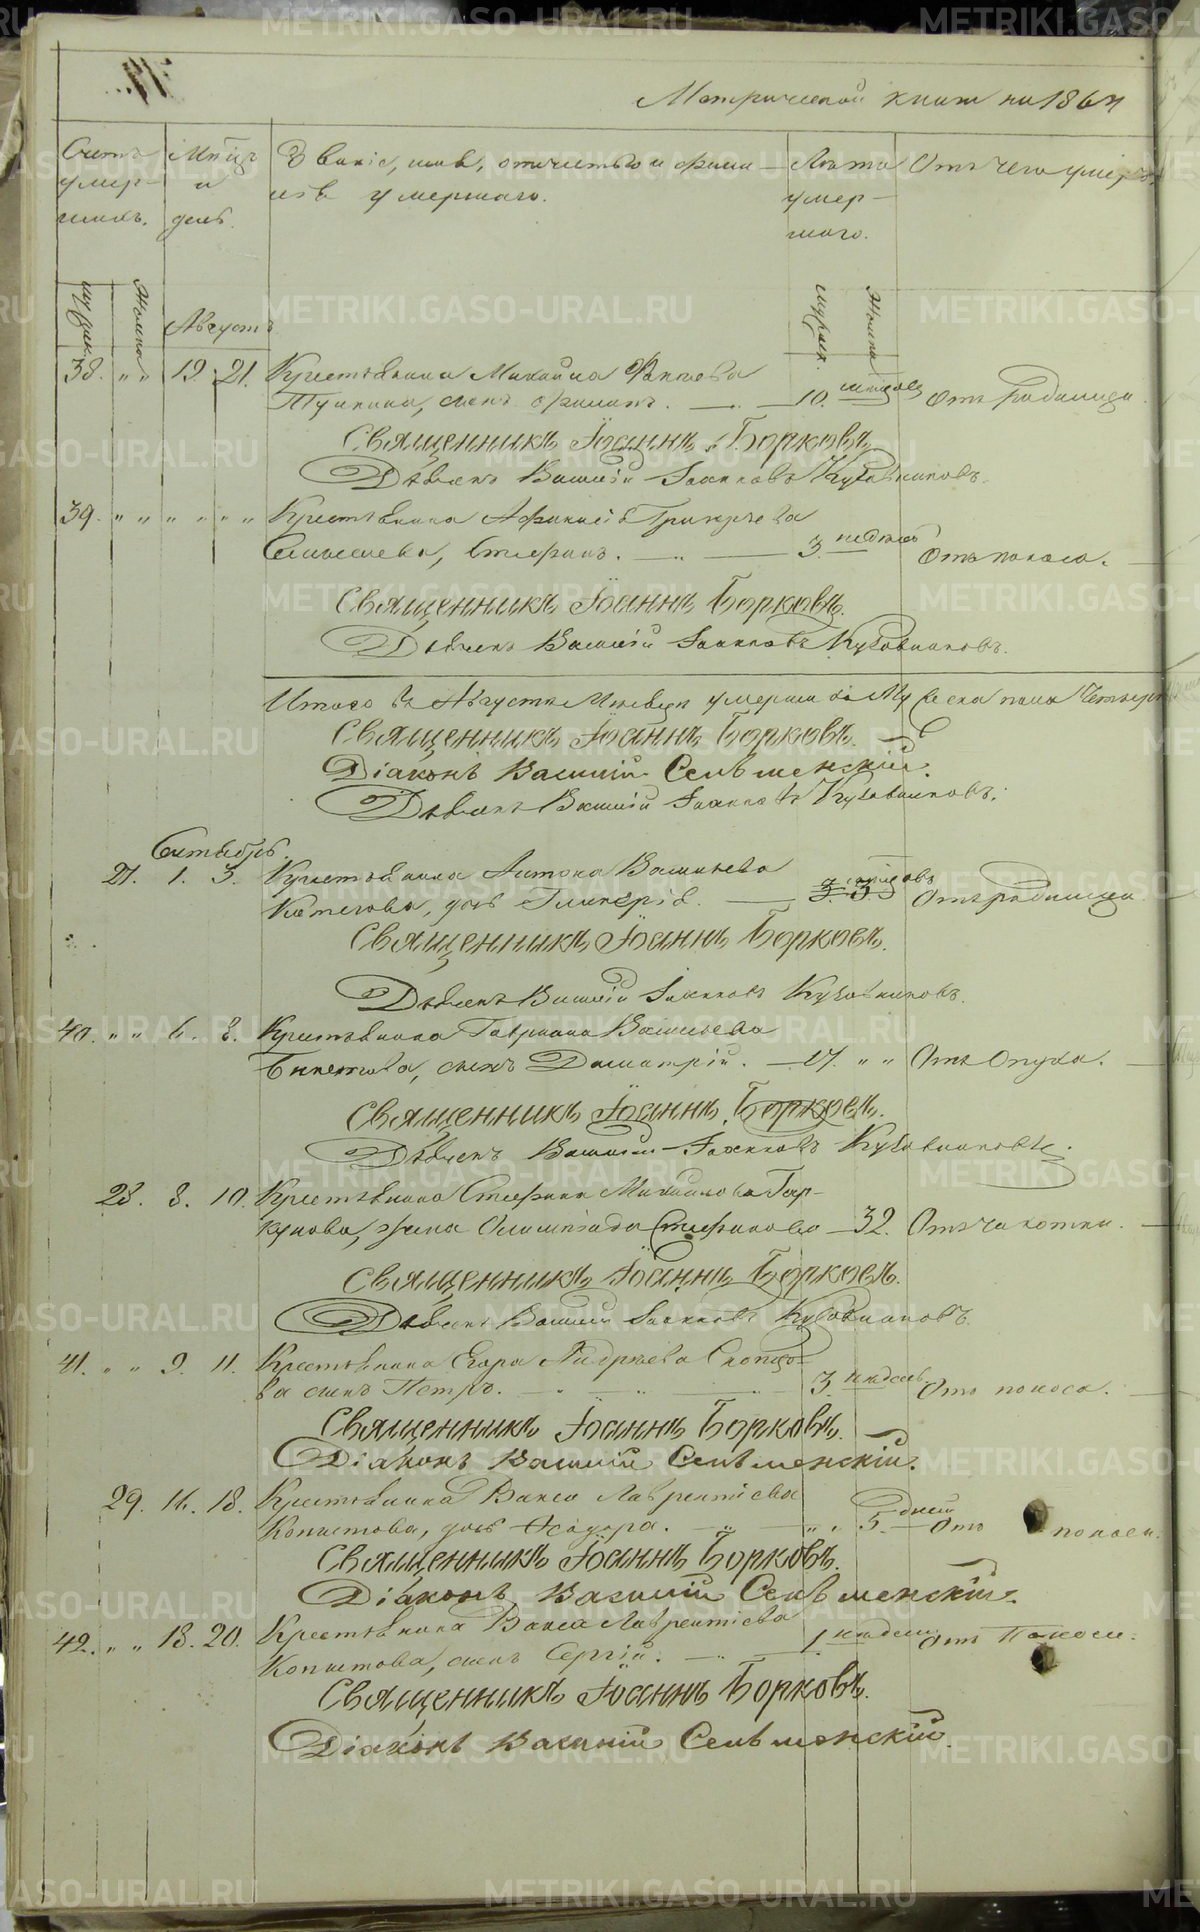 Метрической книги на 1864
Счетъ Мѣсяцъ Званіе, имя, отчество и фами- Лѣта Отъ чего умеръ
умер- и лія умершаго. умер-
шихъ. день. шаго.
Мужск. Женска Мужск. Женска
Августъ
38. " " 19. 21. Крестьянина Михаила
сынъ 10. мѣсяцовъ Отъ родимца.
Священникъ Іоаннъ Борковъ
Дьячекъ Василій Іоанновъ Кузовниковъ.
39. " " " " " " Крестьянина Афанасія Григорьева
Стефанъ. — " — 3. недѣль Отъ поноса.
Священникъ Іоаннъ Борковъ.
Дьячекъ Василій Іоанновъ Кузовниковъ.
Итого въ Августѣ Мѣсяцѣ умерло Мужеска пола
Священникъ Іоаннъ Борковъ.
Діаконъ Василій Сельменскій.
Дьячекъ Василій Іоанновъ Кузовниковъ.
Сентябрь.
27. 1. 3. Крестьянина Антона Васильева
дочь Гликерія. — 3. мѣсяцовъ Отъ родимца
Священникъ Іоаннъ Борковъ.
Дьячекъ Василій Іоанновъ Кузовниковъ.
40. " " 6. 8. Крестьянина Гавриила Васильева
сынъ Димитрій. — 17. " " Отъ Опуха.
Священникъ Іоаннъ Борковъ.
Дьячекъ Василій Іоанновъ Кузовниковъ.
28. 8. 10. Крестьянина Стефана Михайлова Гор-
кунова, жена Олимпіада Стефанова — 32. Отъ чахотки.
Священникъ Іоаннъ Борковъ.
Дьячекъ Василій Іоанновъ Кузовниковъ.
41. " " 9. 11. Крестьянина Егора Андреева Скопцо-
ва сынъ Петръ. — " — 3. недѣль. Отъ поноса.
Священникъ Іоаннъ Борковъ.
Діаконъ Василій Сельменскій.
29. 16. 18. Крестьянина Ивана Лаврентіева
Копытова, дочь Ѳеодора. — " — " . 5. дней Отъ поноса.
Священникъ Іоаннъ Борковъ.
Діаконъ Василій Сельменскій.
42. " " 18. 20. Крестьянина Ивана Лаврентіева
Копытова, сынъ Сергій. — " — 1. недѣли Отъ Поноса.
Священникъ Іоаннъ Борковъ.
Діаконъ Василій Сельменскій.
METRIKI.GASO-URAL.RU